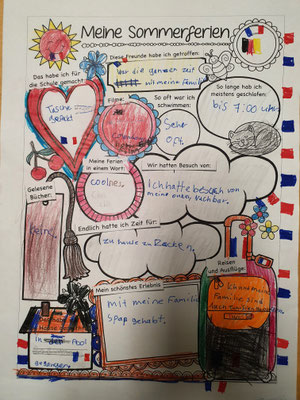 Meine Sommerferien
Diese Freunde habe ich getroffen:
War die ganzen zeit
mit meine Famili
Das habe ich für
die Schule gemacht:
Tasche
gekauft
Filme:
So oft war ich
schwimmen:
Sehr
Oft.
So lange hab ich
meistens geschlafen:
bis 7:00 uhr
Meine Ferien
in einem Wort:
coolnes.
Wir hatten Besuch von:
Ich hatte besuch von
meine onkel, Nachbar.
Gelesene
Bücher:
Keine.
Endlich hatte ich Zeit für:
zu hause zu
Mein schönstes Erlebnis
mit meine Familie
Spaß gehabt.
Reisen
und Ausflüge:
Ich und meine
Familie sind
In Pool